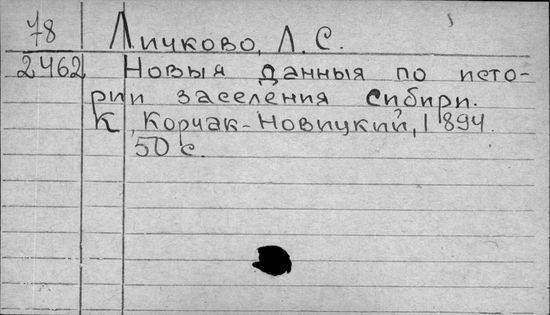 78 Личково, Л. С.
2462 Новыя данныя по исто-
рии заселения Сибири.
К, Корчак-Новицкий, 1894.
50 с.